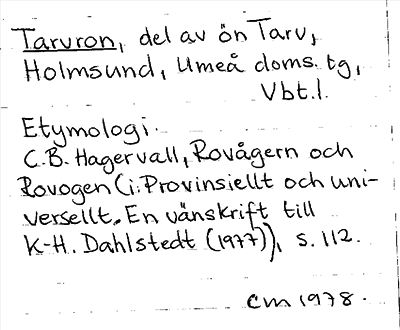 Tarvron, del av ön Tarv,
Holmsund, Umeå doms. tg,
Vbt.l.
Etymologi.
C.B. Hagervall, Rovågern och
Rovogen (i: Provinsiellt och uni-
versellt. En vänskrift till
K-H. Dahlstedt (1977)), s. 112.
cm 1978.